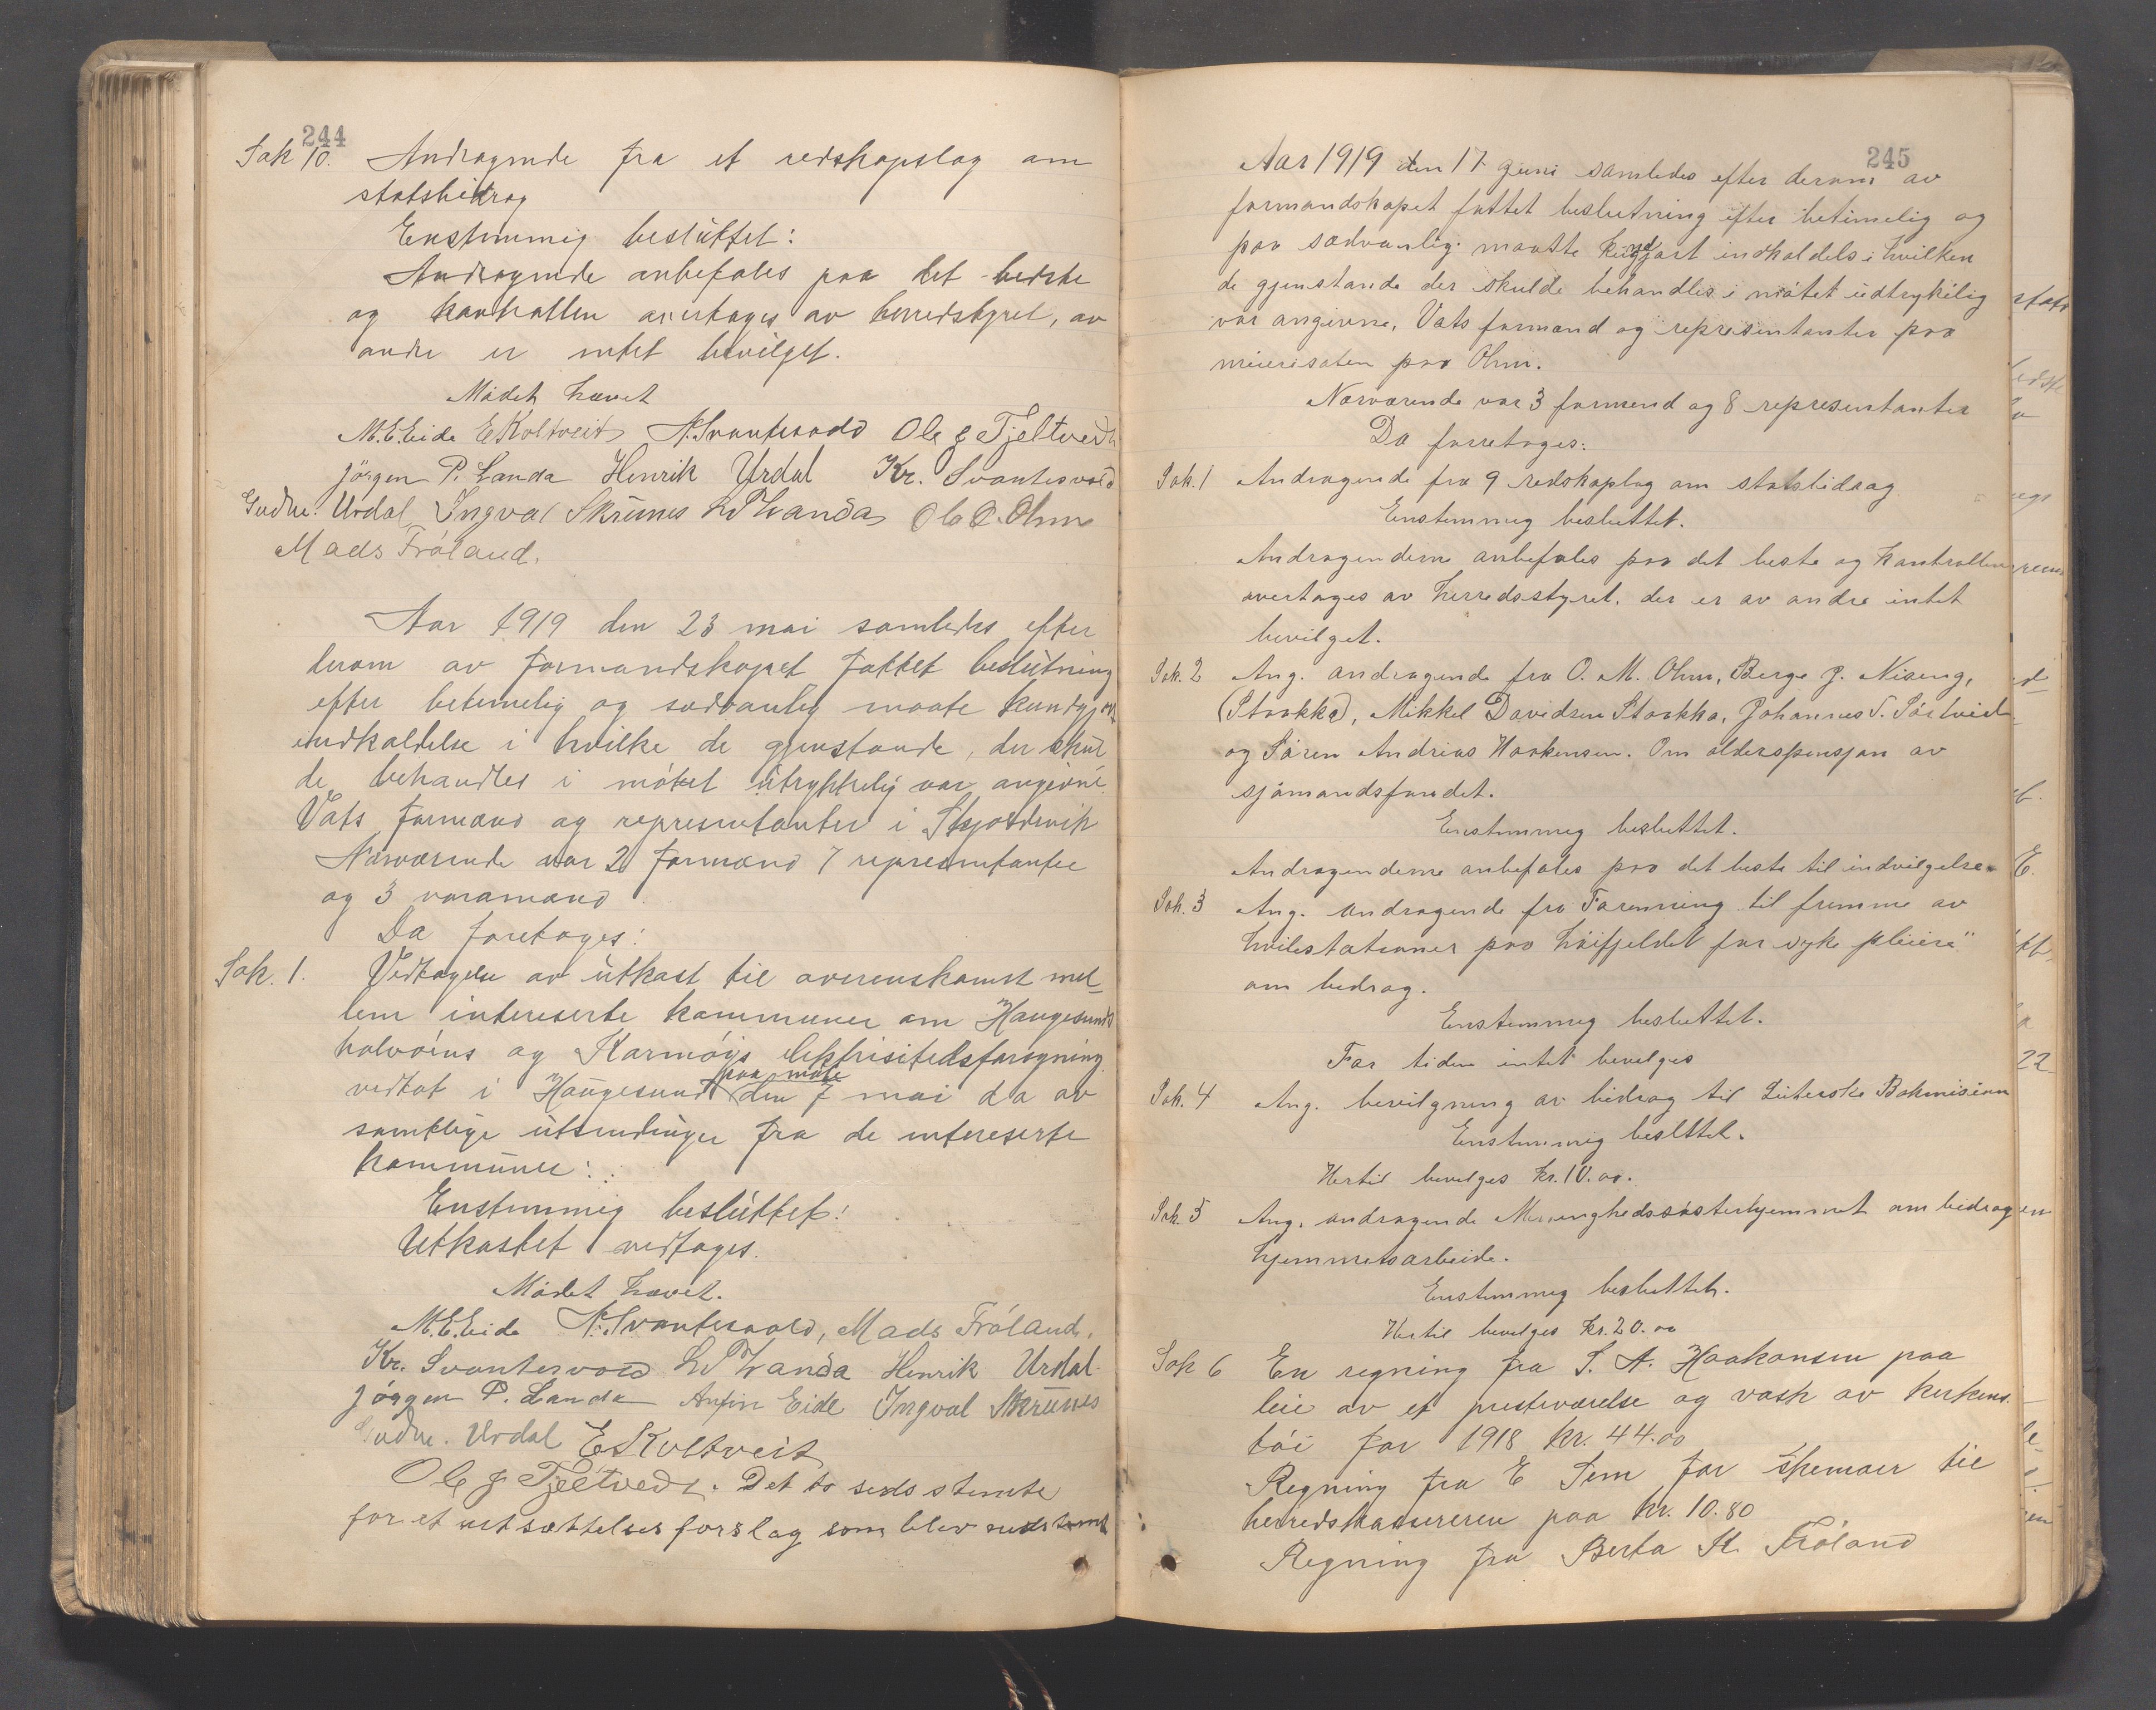 244
Sak 10. Andragende fra et redskapslag om
statsbidrag
Enstemmig besluttet:
Andragende anbefales paa det bedste
og kontrollen overtages av herredstyret, av
andre er intet bevilget.
Mødet hævet
M.E. Eide E Koltveit N. Svantesvold Ole J Tjeltvedt
Jørgen P. Landa Henrik Urdal Kr. Svantesvold
Gudm. Urdal Ingval Skrunes L P Landa Ole O. Ohm
Mads Frøland.
Aar 1919 den 23 mai samledes efter
derom av formandskapet fattet beslutning
efter betimelig og sedvanlig maate kundgjort
indkaldelse i hvilke de gjenstande, der skul
de behandles i møtet utrykkelig var angivne
Vats formænd og representanter i Skjoldevik
Nærværende var 2 formænd 7 representanter
og 3 varamænd.
Da foretoges:
Sak. 1. Vedtagelse av utkast til overenskomst mel-
lem intereserte kommuner om Haugesunds
halvøens og Karmøys elektrisitedsforsyning
vedtat i Haugesund paa møte den 7 mai da av
samtlige utsendinger fra de intereserte
kommuner:
Enstemmig besluttet:
Utkastet vedtages.
Mødet hævet.
M.E. Eide N. Svantesvold, Mads Frøland,
Kr. Svantesvold L P Landa Henrik Urdal
Jørgen P. Landa Anfin Eide Ingval Skrunes
Gudm. Urdal E Koltveit
Ole J Tjeltvedt. Det to sids stemte
for et utsættelses forslag som blev nedstemt
245
Aar 1919 den 17 juni samledes efter derom av
formandskapet fattet beslutning efter betimelig og
paa sædvanlig maatte kundgjort indkaldels i hvilken
de gjenstande der skulde behandles i møtet udtrykelig
var angivne, Vats formænd og representanter paa
meierisalen paa Ohm.
Nærværende var 3 formend og 8 representanter
Da forretoges:
Sak. 1 Andragende fra 9 redskaplag om statsbidrag
Enstemmig besluttet.
Andragenderne anbefales paa det beste og kontrollen
overtages av herredsstyret. der er av andre intet
bevilget.
Sak. 2 Ang. andragende fra O. M. Ohm, Berge J.
(Stakka), Mikkel Davidsen Stakka, Johannes S.
og Søren Andreas Haakensen. Om alderspensjon av
sjømandsfondet.
Enstemmig besluttet.
Andragenderne anbefales paa det beste til indvilgelse.
Sak. 3 Ang. andragende fra Forenning til fremme av
hvilestationer paa høifjeldet for syke pleiere"
om bedrag.
Enstemmig besluttet.
For tiden intet bevelges
Sak. 4 Ang. bevilgning av bidrag til Luterske Bokmision
Enstemmig beslttet.
Hertil bevelges kr. 10.00.
Sak. 5 Ang. andragende Menenghedssøsterhjemmet om bedrag
hjemmetsarbeide.
Enstemmig besluttet.
Hertil bevelges kr. 20.00
Sak 6 En regning fra S. A. Haakonsen paa
leie av et presteværelse og vask av kirkens
tøi for 1918 kr. 44.00
Regning fra E Sem for skemaer til
herredskassereren paa kr. 10.80
Regning fra Berta K. Frøland